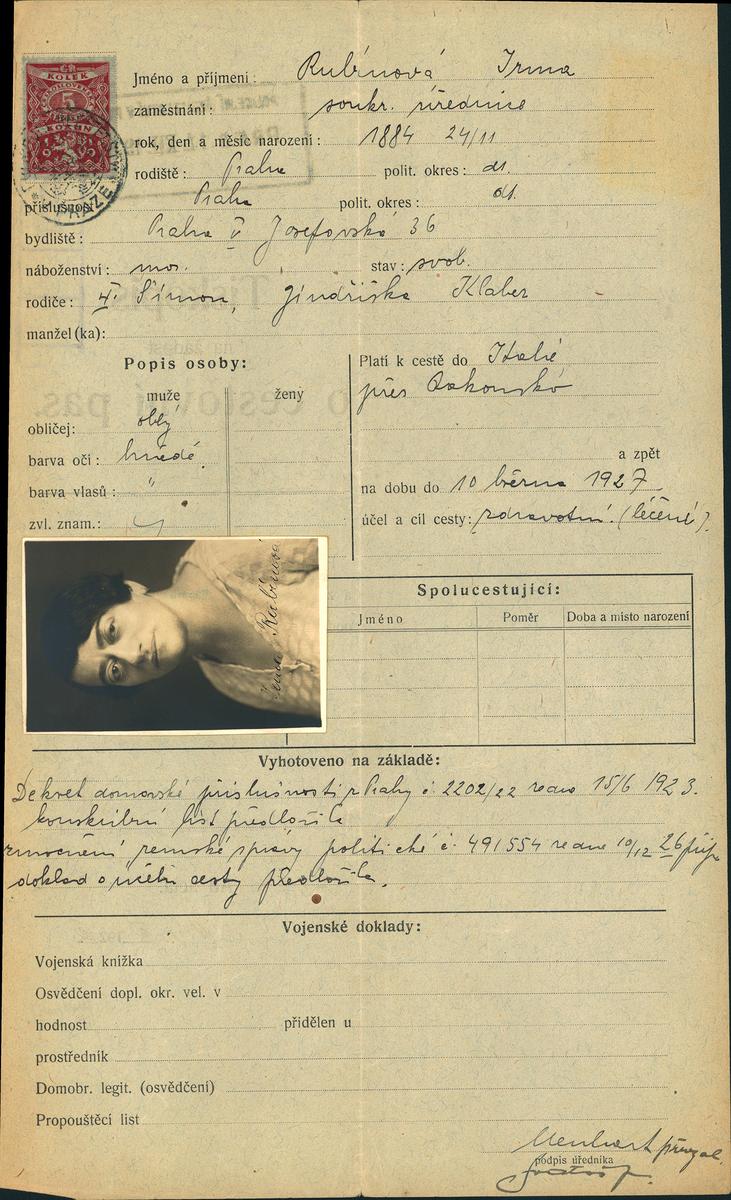 KOLEK
5
KORUN
Jméno a příjmení: Rubínová Irma
zaměstnání: soukr. úřednice
rok, den a měsíc narození: 1884 24/11
rodiště: Praha polit. okres: dt.
příslušnost Praha polit. okres: dt.
bydliště: Praha V Josefovská 36
náboženství: mos. stav: svob.
rodiče: Šimon, Jindřiška Klaber
manžel (ka):
Popis osoby:
muže ženy
obličej: oblý
barva očí: hnědé
barva vlasů: "
zvl. znam.:
Platí k cestě do Italie
přes Rakousko
a zpět
na dobu do 10 března 1927
účel a cíl cesty: zdravotní. (léčení).
Irma Rubínová
Spolucestující:
Jméno Poměr Doba a místo narození
Vyhotoveno na základě:
Dekret domovské příslušnosti z Prahy č. 2202/22 ze dne 15/6 1923.
konskribní list předložila
zmocnění zemské správy politické č. 491554 ze dne 10/12 26
doklad o účelu cesty předložila.
Vojenské doklady:
Vojenská knížka
Osvědčení dopl. okr. vel. v
hodnost přidělen u
prostředník
Domobr. legit. (osvědčení)
Propouštěcí list
podpis úředníka